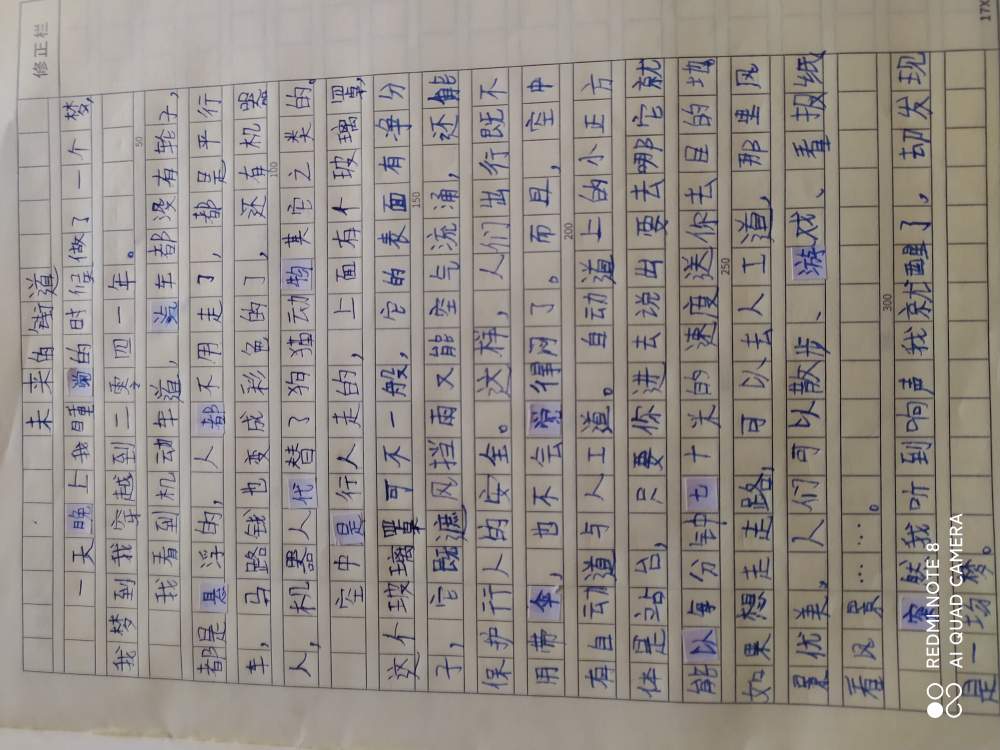 修正栏
未来的街道
一天晚上我睡觉的时候做了一个梦,
我梦到我穿越到二零四一年。
50
我看到机动车道,汽车都没有轮子,
都是悬浮的,人都不用走了,都是平行
车,马路钱也变成彩色的了,还有机器
100
人,机器人代替了狗猫动物其它之类的。
空中是行人走的,上面有个玻璃罩,
这个玻璃罩可不一般,它的表面有净分
150
子,它既遮风挡雨又能空气流涌,还能
保护行人的安全。这样,人们出行既不
用带伞,也不会觉得闷了。而且,空中
200
有自动道与人工道。自动道上的小正方
体是站台,只要你进去说出要去哪它就
能以每分钟七十米的速度送你去目的地,
250
如果想走走路,可以去人工道,那里风
景优美,人们可以散步、游戏、看报纸
看风景……。
300
突然我听到响声我就醒了,却发现
是一场梦。
17X
REDMI NOTE 8
AI QUAD CAMERA